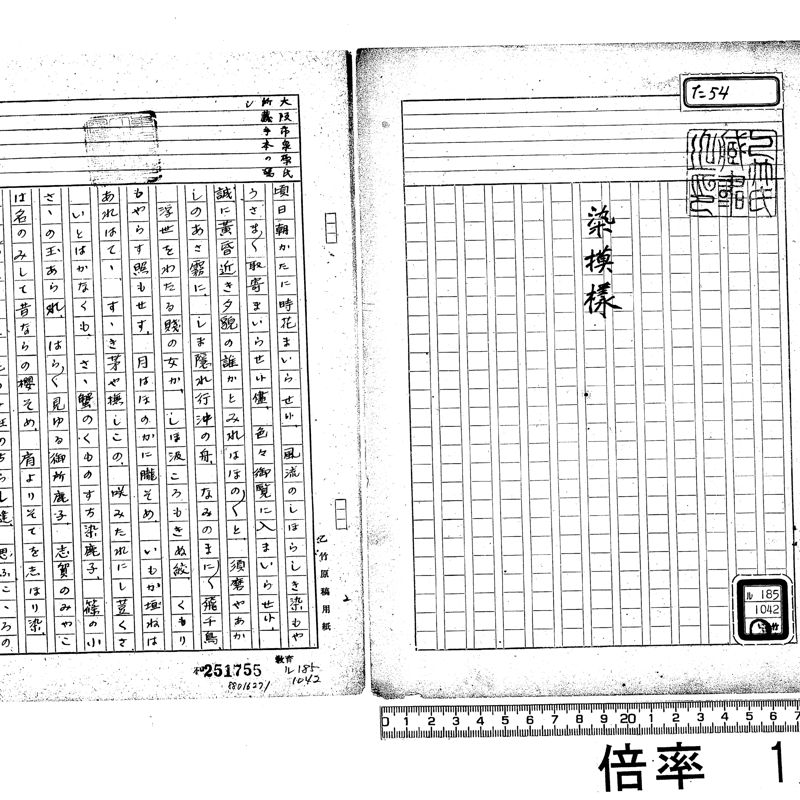 た54
乙竹氏
蔵書
染模様
ル 185
1042
大阪市泉原氏
所蔵手本の写
し
頃日朝かたに時花まいらせ候、風流のしほらしき染もや
うさま〴〵取寄まいらせ候儘、色々御覧に入まいらせ候、
誠に黄昏近き夕貌の誰かとみれはほの〴〵と、須磨やあか
しのあさ霧に、しま隠れ行沖の舟、なみのまに〳〵飛千鳥
浮世をわたる賤の女か、しほ汲ころもきぬ紋、くもり
もやらす照もせす、月はほのかに朧そめ、いもか垣ねは
あれはてゝ、すゝき茅や撫しこの、咲みたれにし荳くさ
いとはかなくも、さゝ蟹のくものすち染鹿子、篠の小
さゝの玉あられ、はら〳〵見ゆる御所鹿子、志賀のみやこ
は名のみして昔ならの櫻そめ、肩よりそてを志はり染、
乙竹原稿用紙
和251755
教育
ル185
1042
8801627/
0 1 2 3 4 5 6 7 8 9 20 1 2 3 4 5 6 7
倍率 1